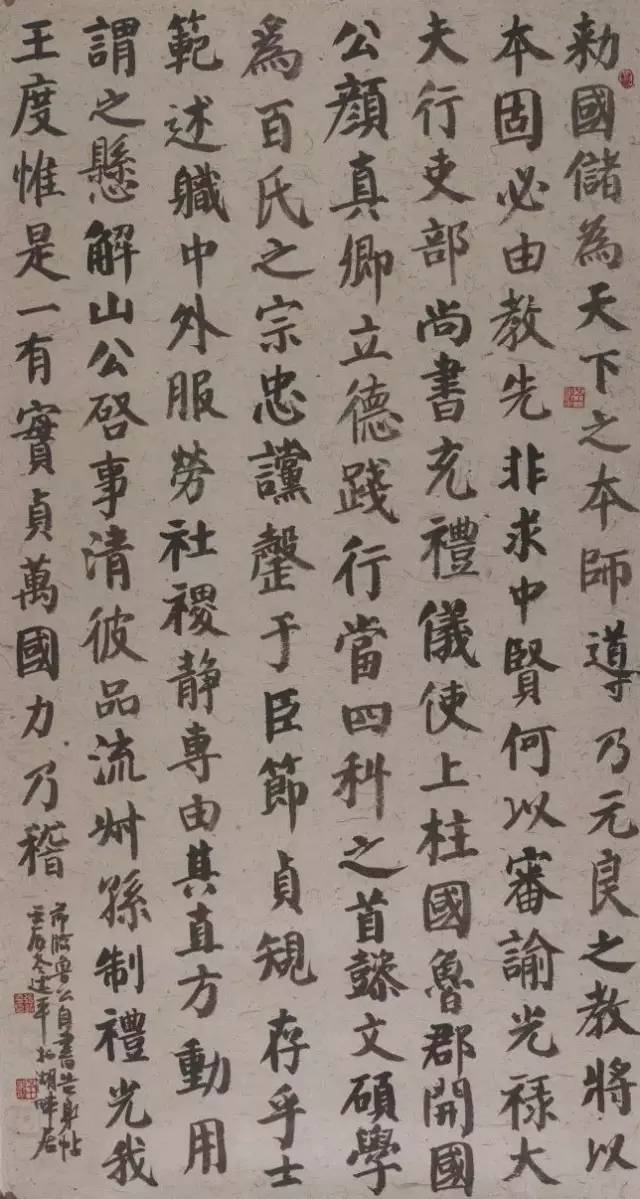 勑國儲為天下之本師導乃元良之教將以
本固必由教先非求中賢何以審諭光祿大
夫行吏部尚書充禮儀使上柱國魯郡開國
公顏真卿立德踐行當四科之首懿文碩學
為百氏之宗忠讜罄于臣節貞規存乎士
範述職中外服勞社稷静專由其直方動用
謂之懸解山公啓事清彼品流㭉孫制禮光我
王度惟是一有實貞萬國力乃稽
節临魯公自書告身帖
冬建平於湖畔居